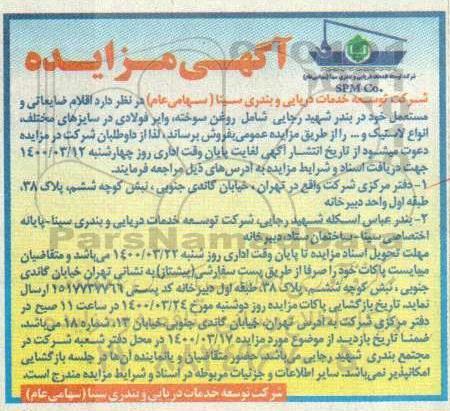 آگهی مزایده
شرکت توسعه خدمات دریایی و بندری سینا (سهامی عام)
SPM Co.
شرکت توسعه خدمات دریایی و بندری سینا ( سهامی عام) در نظر دارد اقلام ضایعاتی و
مستعمل خود در بندر شهید رجایی شامل روغن سوخته، وایر فولادی در سایزهای مختلف،
انواع لاستیک و ... را از طریق مزایده عمومی بفروش برساند، لذا از داوطلبان شرکت در مزایده
دعوت میشود از تاریخ انتشار آگهی لغایت پایان وقت اداری روز چهارشنبه ۱۴۰۰/۰۳/۱۲
جهت دریافت اسناد و شرایط مزایده به آدرس‌های ذیل مراجعه فرمایند.
۱- دفتر مرکزی شرکت واقع در تهران ، خیابان گاندی جنوبی ، نبش کوچه ششم، پلاک ۳۸،
طبقه اول واحد دبیرخانه
۲- بندر عباس اسکله شهید رجایی، شرکت توسعه خدمات دریایی و بندری سینا-پایانه
اختصاصی سینا-ساختمان ستاد، دبیرخانه
مهلت تحویل اسناد مزایده تا پایان وقت اداری روز شنبه ۱۴۰۰/۰۳/۲۲ می‌باشد و متقاضیان
میبایست پاکات خود را صرفا از طریق پست سفارشی(پیشتاز) به نشانی تهران خیابان گاندی
جنوبی ، نبش کوچه ششم، پلاک ۳۸، طبقه اول دبیرخانه کد پستی ۱۵۱۷۷۳۷۷۶۶ ارسال
نماید. تاریخ بازگشایی پاکات مزایده روز دوشنبه مورخ ۱۴۰۰/۰۳/۲۴ در ساعت ۱۱ صبح در
دفتر مرکزی شرکت به آدرس تهران، خیابان گاندی جنوبی خیابان ۱۳، شماره ۱۸ می‌باشد.
ضمناً تاریخ بازدید از موضوع مورد مزایده ۱۴۰۰/۰۳/۱۷ در محل دفتر شعبه شرکت در
مجتمع بندری شهید رجایی می‌باشد، حضور متقاضیان و یا نماینده آن‌ها در جلسه بازگشایی
امکانپذیر نمی‌باشد. سایر اطلاعات و جزئیات مربوطه در اسناد و شرایط مزایده مندرج است.
شرکت توسعه خدمات دریایی و بندری سینا (سهامی عام)
ParsNamadData